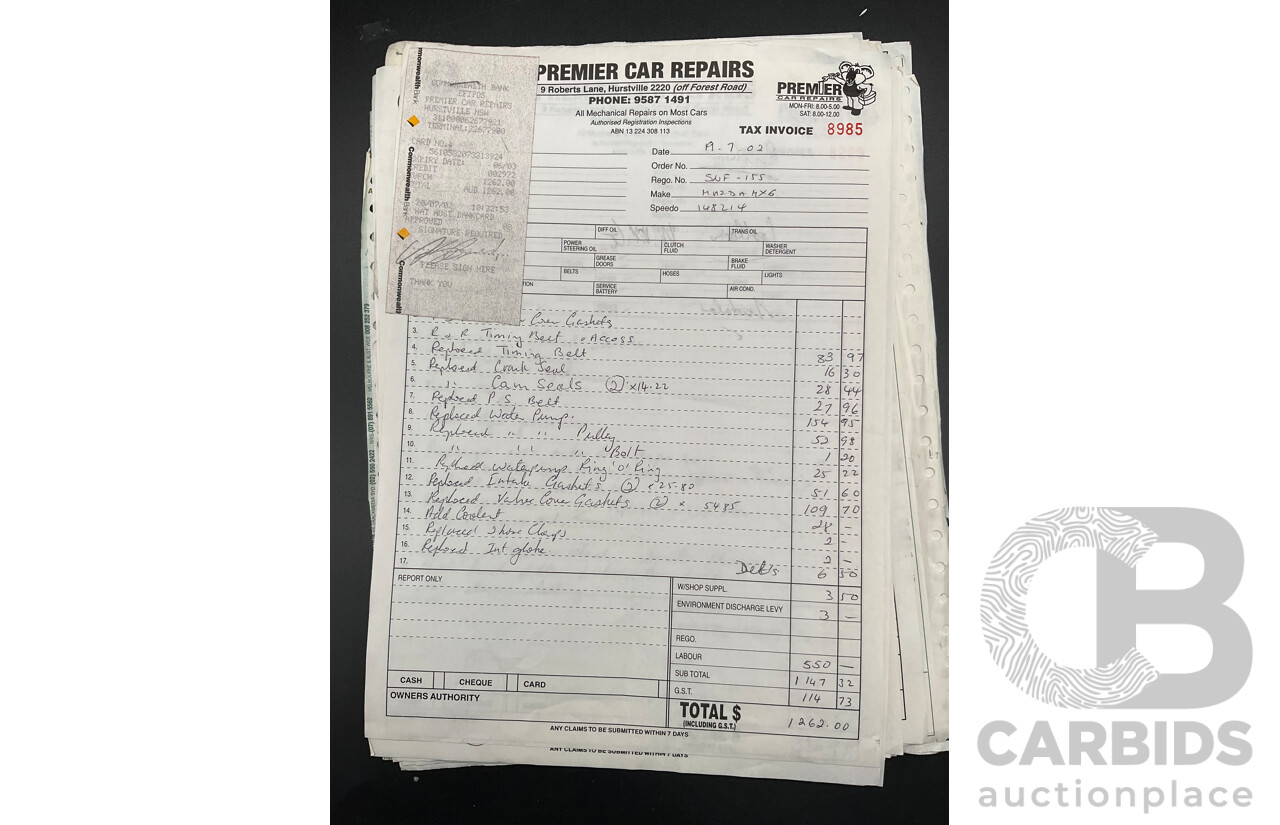 COMMONWEALTH BANK
EFTPOS
PREMIER CAR REPAIRS
HURSTVILLE NSW
TERMINAL:22677900
CARD NO.
EXPIRY DATE: 06/03
CREDIT 002972
1262.00
AUD 1262.00
APPROVED
SIGNATURE REQUIRED
PLEASE SIGN HERE
THANK YOU
Commonwealth
PREMIER CAR REPAIRS
9 Roberts Lane, Hurstville 2220 (off Forest Road)
PHONE: 9587 1491
All Mechanical Repairs on Most Cars
Authorised Registration Inspections
ABN 13 224 308 113
PREMIER
CAR REPAIRS
MON-FRI: 8.00-5.00
SAT: 8.00-12.00
TAX INVOICE 8985
Date 19.7.02
Order No.
Rego. No. SUF-155
Make MAZDA MX6
Speedo 148214
DIFF OIL TRANS OIL
POWER STEERING OIL CLUTCH FLUID WASHER DETERGENT
GREASE DOORS BRAKE FLUID
BELTS HOSES LIGHTS
SERVICE BATTERY AIR COND.
Cover Gaskets
3. R & R Timing Belt & Access
4. Replaced Timing Belt 83 97
5. Replaced Crank Seal 16 30
6. " Cam Seals (2) x14.22 28 44
7. Replaced P S Belt 27 96
8. Replaced Water Pump. 154 95
9. Replaced " " Pulley 52 98
10. " " " Bolt 1 20
11. Replaced waterpump Ring 'O' Ring 25 22
12. Replaced Intake Gaskets (2) x 25-80 51 60
13. Replaced Valve Cover Gaskets (2) x 5485 109 70
14. Add Coolant 28 -
15. Replaced 2 hose Clamps 2 -
16. Replaced Int globe. 2 -
17. 6 50
REPORT ONLY
W/SHOP SUPPL. 3 50
ENVIRONMENT DISCHARGE LEVY 3 -
REGO.
LABOUR 550 -
SUB TOTAL 1147 32
G.S.T. 114 73
CASH CHEQUE CARD
OWNERS AUTHORITY
TOTAL $ 1262.00
(INCLUDING G.S.T.)
ANY CLAIMS TO BE SUBMITTED WITHIN 7 DAYS
ANY CLAIMS TO BE SUBMITTED WITHIN 7 DAYS
CB
CARBIDS
auctionplace